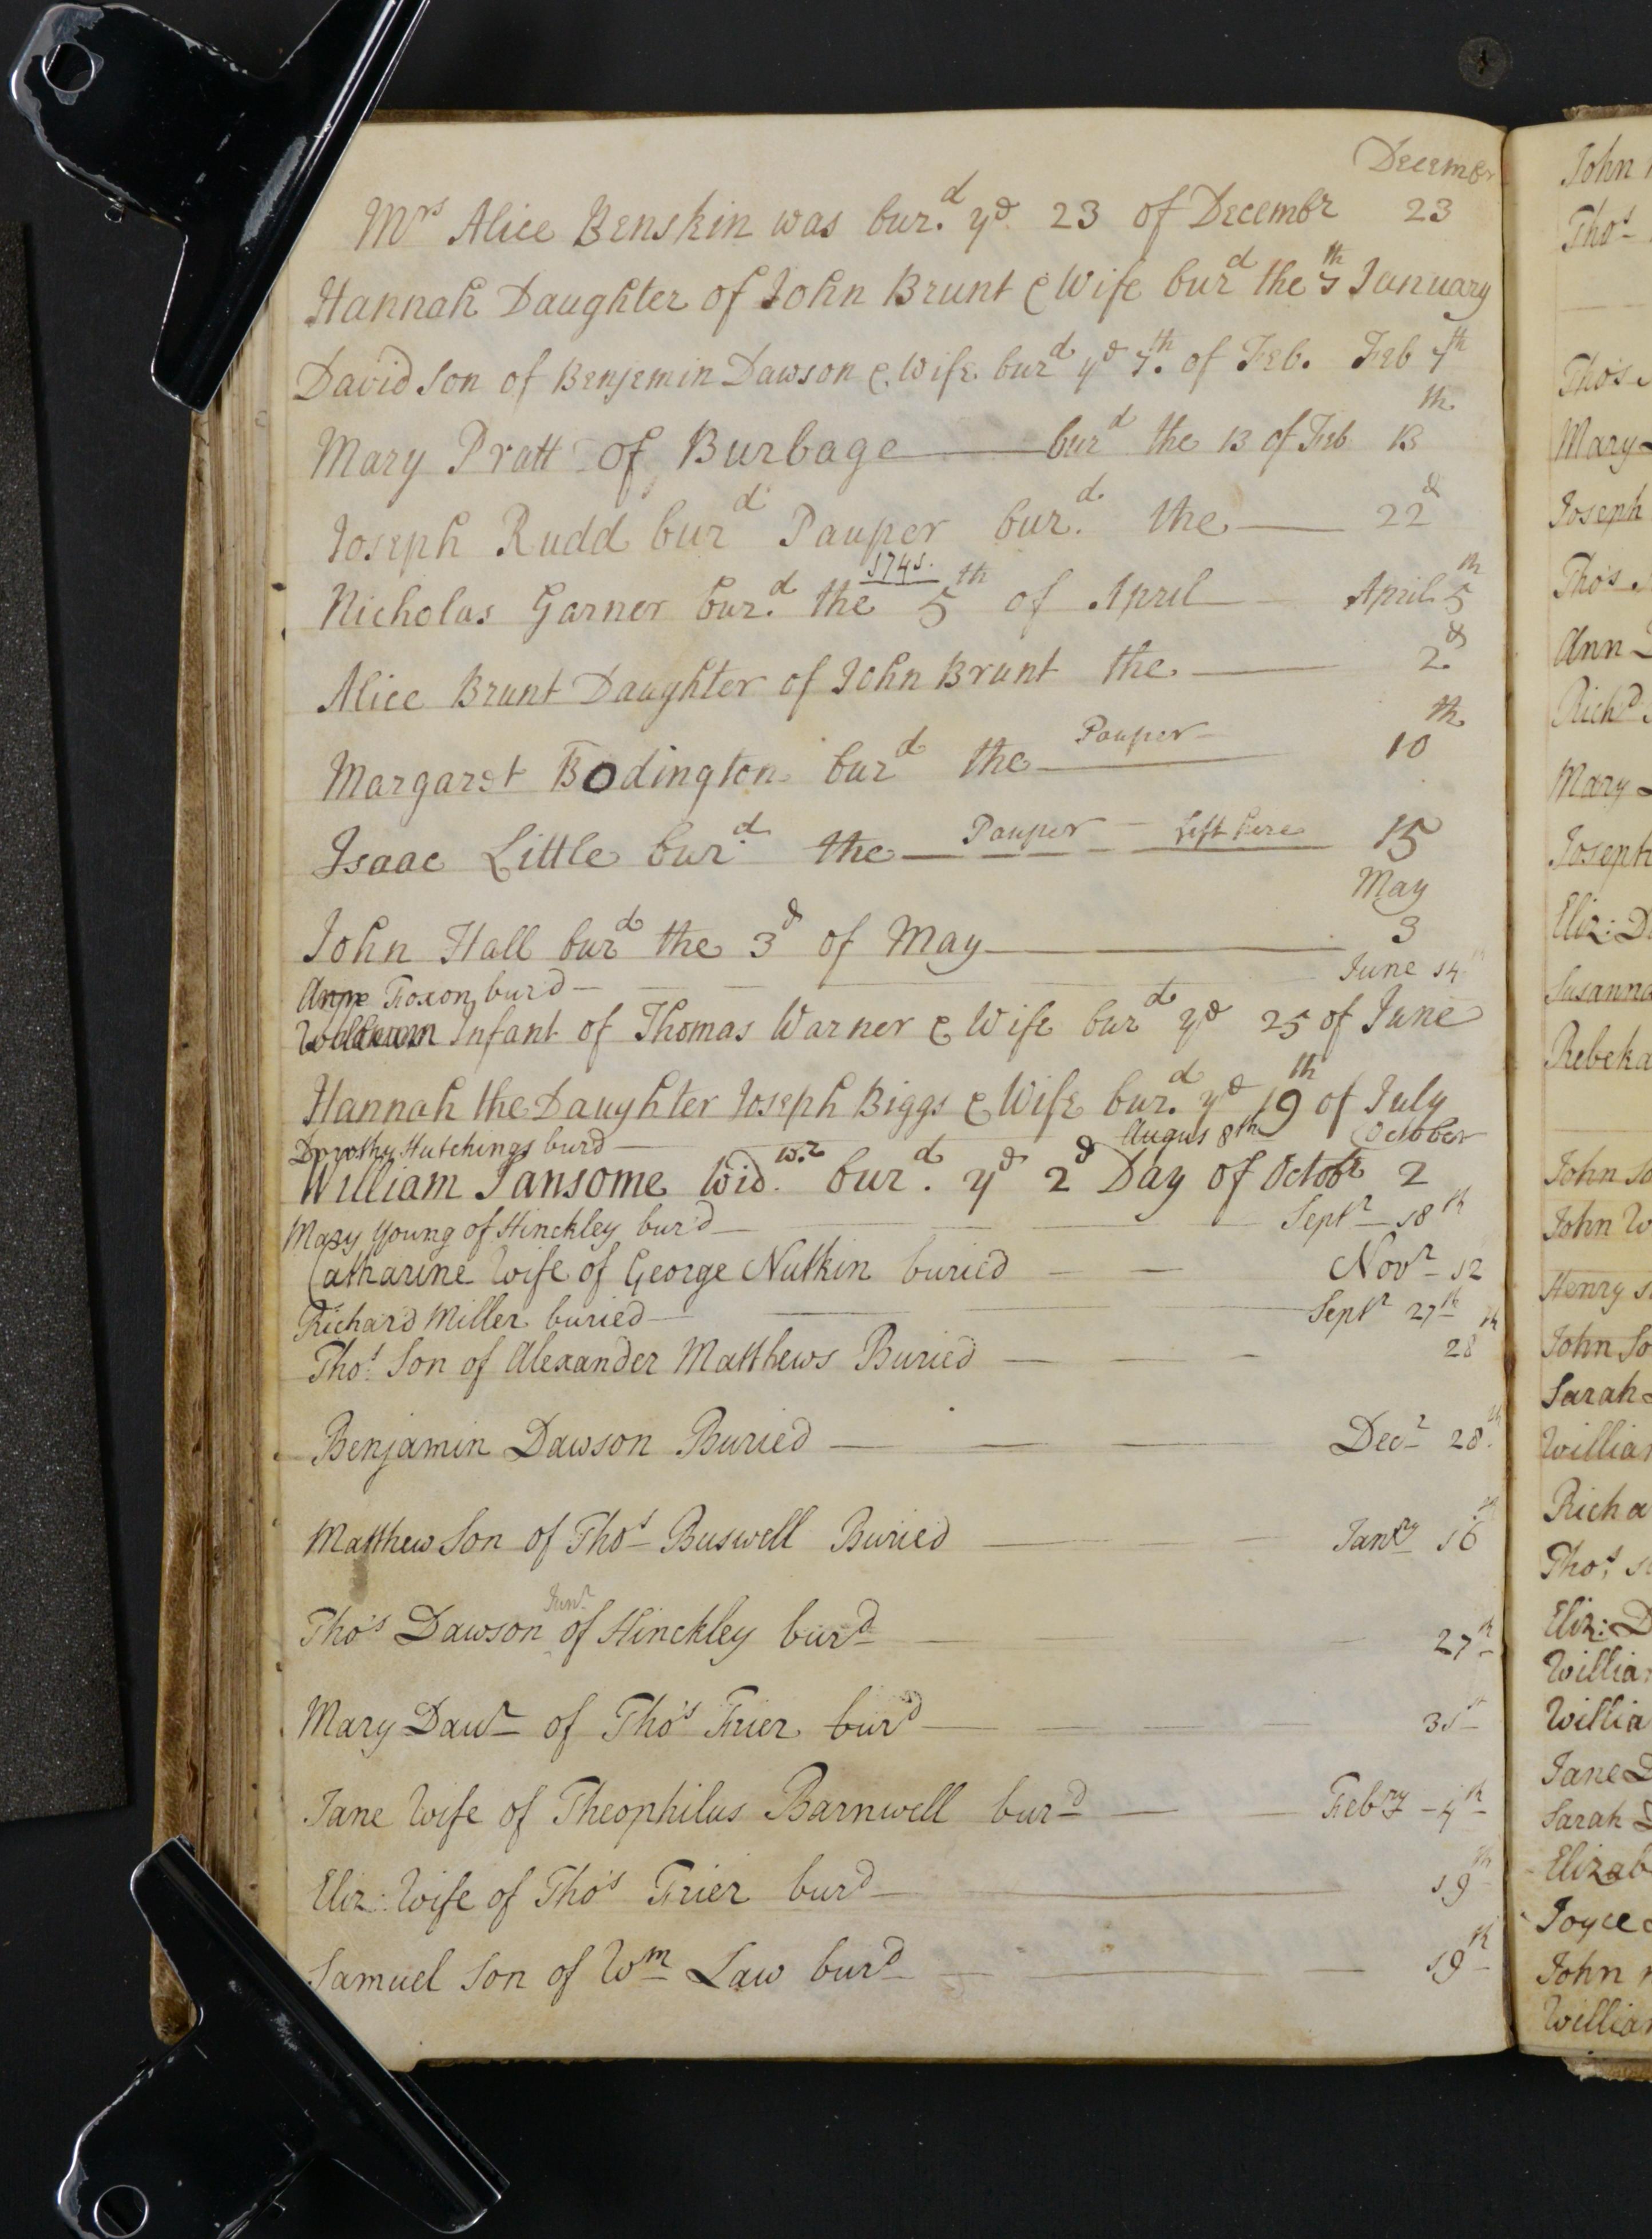 Decembr
Mrs Alice Benskin was bur.d ye 23 of Decembr 23
Hannah Daughter of John Brunt & Wife burd the 5th January
David Son of Benjemin Dawson & Wife burd ye 7th. of Feb. Feb 7th
Mary Pratt of Burbage burd the 13 of Feb 13th
Joseph Rudd burd Pauper bur.d the 22d
1745.
Nicholas Garner bur.d the 5th of April April 5th
Alice Brunt Daughter of John Brunt the 2d
Margaret Bodington burd the Pauper 10th
Isaac Little bur.d the Pauper left here 15
May
John Hall burd the 3d of May 3
Anne Foxon burd June 14
William Infant of Thomas Warner & Wife burd ye 25 of June
Hannah the Daughter Joseph Biggs & Wife bur.d ye 19th of July
Dorothy Hutchings burd Augus 8th October
William Jansome Wid. wr bur.d. ye 2d Day of Octobr 2
Mary Young of Hinckley bur'd Septr 18th
Catharine Wife of George Nutkin buried Novr 12
Richard Miller buried Septr 27th
Thos. Son of Alexander Matthews Buried 28th
Benjamin Dawson Buried Decr 28th.
Matthew Son of Thos Buswell Buried Janry 16th
Thos Dawson Junr of Hinckley burd 27th
Mary Daur of Thos Frier burd 31st
Jane Wife of Theophilus Barnwell burd Febry 4th
Eliz: Wife of Thos Frier burd 19th
Samuel Son of Wm Law burd 19th
John
Thos
Thos
Mary
Joseph
Thos
Ann
Richd
Mary
Joseph
Eliz: D
Susanna
Rebeka
John So
John W
Henry
John So
Sarah
William
Richa
Thos,
Eliz: D
Willia
Willia
Jane D
Sarah
Elizab
Joyce
John
William